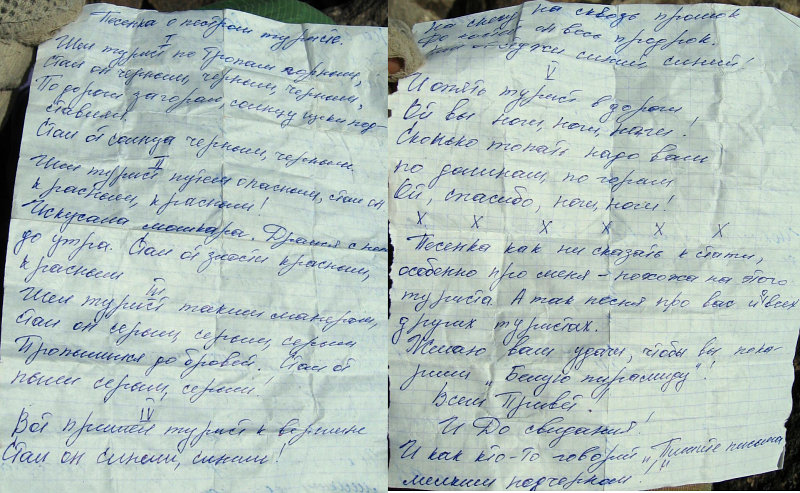 Песенка о пестром туристе.
I
Шел турист по тропам горным,
Стал он черным, черным, черным,
По дороги загорал, солнцу щеки под-
ставлял.
Стал от солнца черным, черным.
II
Шел турист путем опасным, стал он
красным, красным!
Искусала мошкара. Дрался с ней
до утра. Стал от злости красным,
красным
III
Шел турист таким манером,
Стал он серым, серым, серым
Пропылился до бровей. Стал от
пыли серым, серым!
IV
Вот пришел турист к вершине
Стал он синим, синим!
на снегу на сквозь промок
он весь продрог.
стужи синий синий!
V
И опять турист в дороги
Ой вы ноги, ноги, ноги!
Сколько топать надо вам
по долинам, по горам
Ой, спасибо, ноги, ноги!
X X X X X X
Песенка как ни сказать к стати,
особенно про меня - похожа на этого
туриста. А так песня про вас и всех
других туристах.
Желаю вам удачи, чтобы вы поко-
рили „Белую пирамиду"!
Всем Привет
И До свидания!
И как кто-то говорит „Пишите письма
мелким подчерком!"